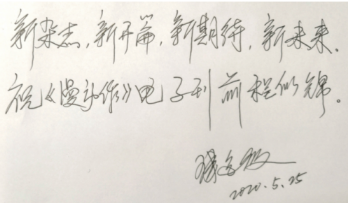 新杂志,新开篇,新期待,新未来。
祝《漫动作》电子刊前程似锦。
2020.5.25